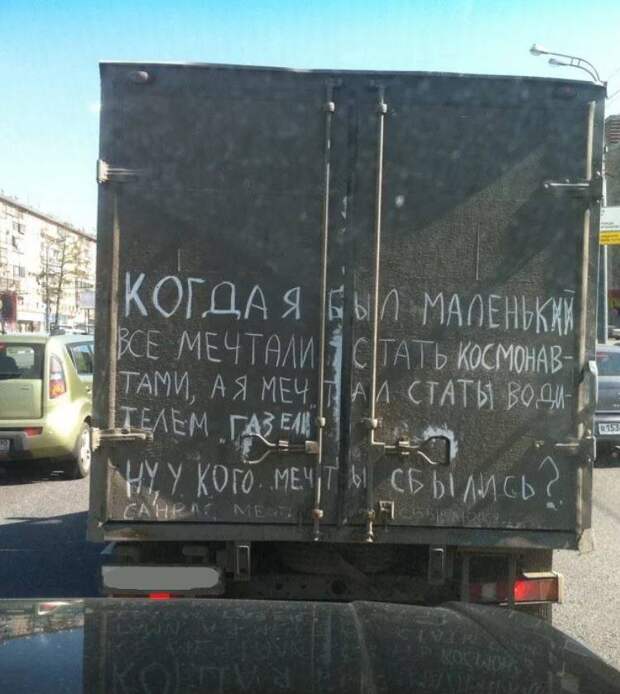 КОГДА Я БЫЛ МАЛЕНЬКИЙ
ВСЕ МЕЧТАЛИ СТАТЬ КОСМОНАВ-
ТАМИ, А Я МЕЧТАЛ СТАТЬ ВОДИ-
ТЕЛЕМ "ГАЗЕЛИ"
НУ, У КОГО МЕЧТЫ СБЫЛИСЬ?